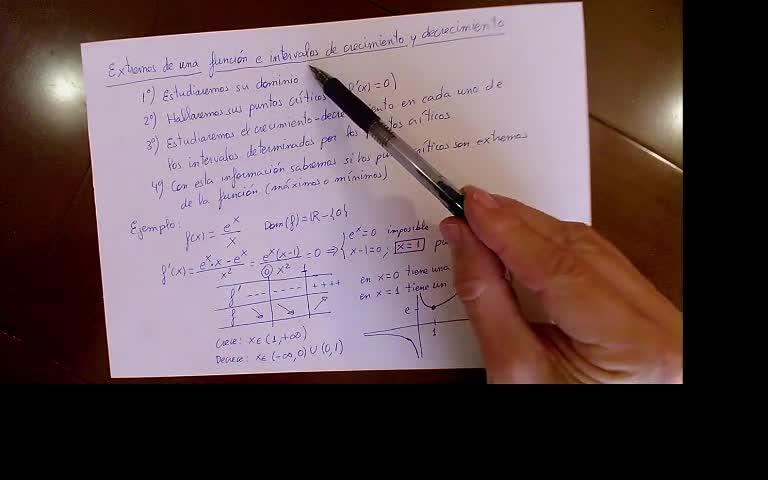 Extremos de una función e intervalos de crecimiento y decrecimiento
1º) Estudiaremos su dominio
2º) Hallaremos sus puntos críticos f'(x)=0)
3º) Estudiaremos el crecimiento-decrecimiento en cada uno de
los intervalos determinados por los puntos críticos
4º) Con esta información sabremos si los puntos críticos son extremos
de la función (máximos o mínimos)
Ejemplo:
f(x) = e^x / x Dom(f) = ℝ - {0}
f'(x) = (e^x · x - e^x) / x² = e^x (x-1) / x² = 0 ⇒ { e^x = 0 imposible
x-1=0; x=1
0 1
f' --- -- ++++
f ↘ ↘ ↗
en x=0 tiene una
en x=1 tiene un
e
1
Crece: x∈(1,+∞)
Decrece: x∈(-∞,0)∪(0,1)